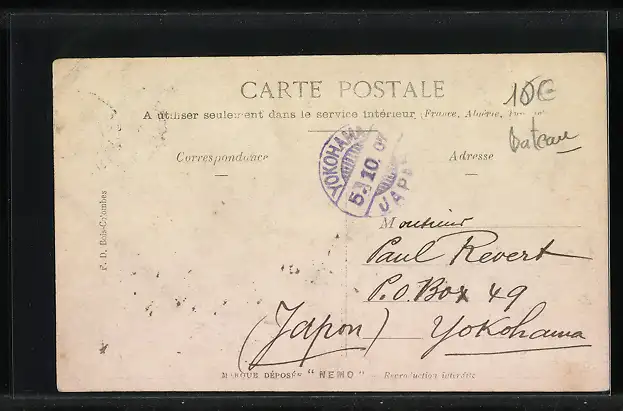 CARTE POSTALE
A utiliser seulement dans le service intérieur (France, Algérie,
10€
bateau
Correspondance
Adresse
YOKOHAMA
5.10.07
JAPAN
F. D. Bois-Colombes
Monsieur
Paul Revert
P.O. Box 49
(Japon) Yokohama
MARQUE DÉPOSÉE "NEMO" - Reproduction interdite